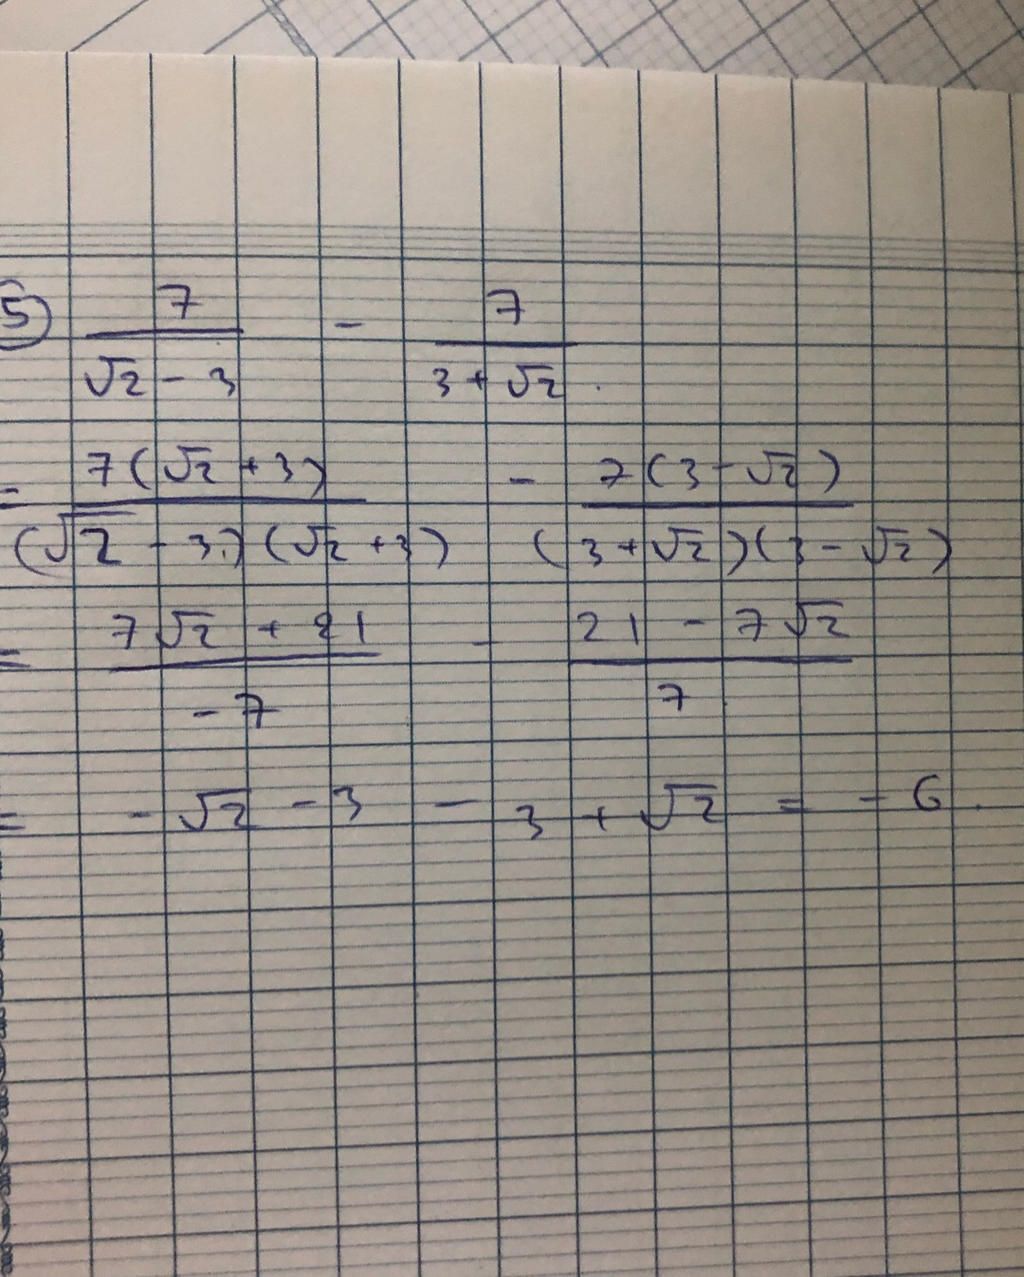 5) 7/(√2 - 3) - 7/(3 + √2) .
= 7(√2 + 3)/((√2 - 3)(√2 + 3)) - 7(3 - √2)/((3 + √2)(3 - √2))
= (7√2 + 21)/(-7) - (21 - 7√2)/7
= - √2 - 3 - 3 + √2 = - 6 .